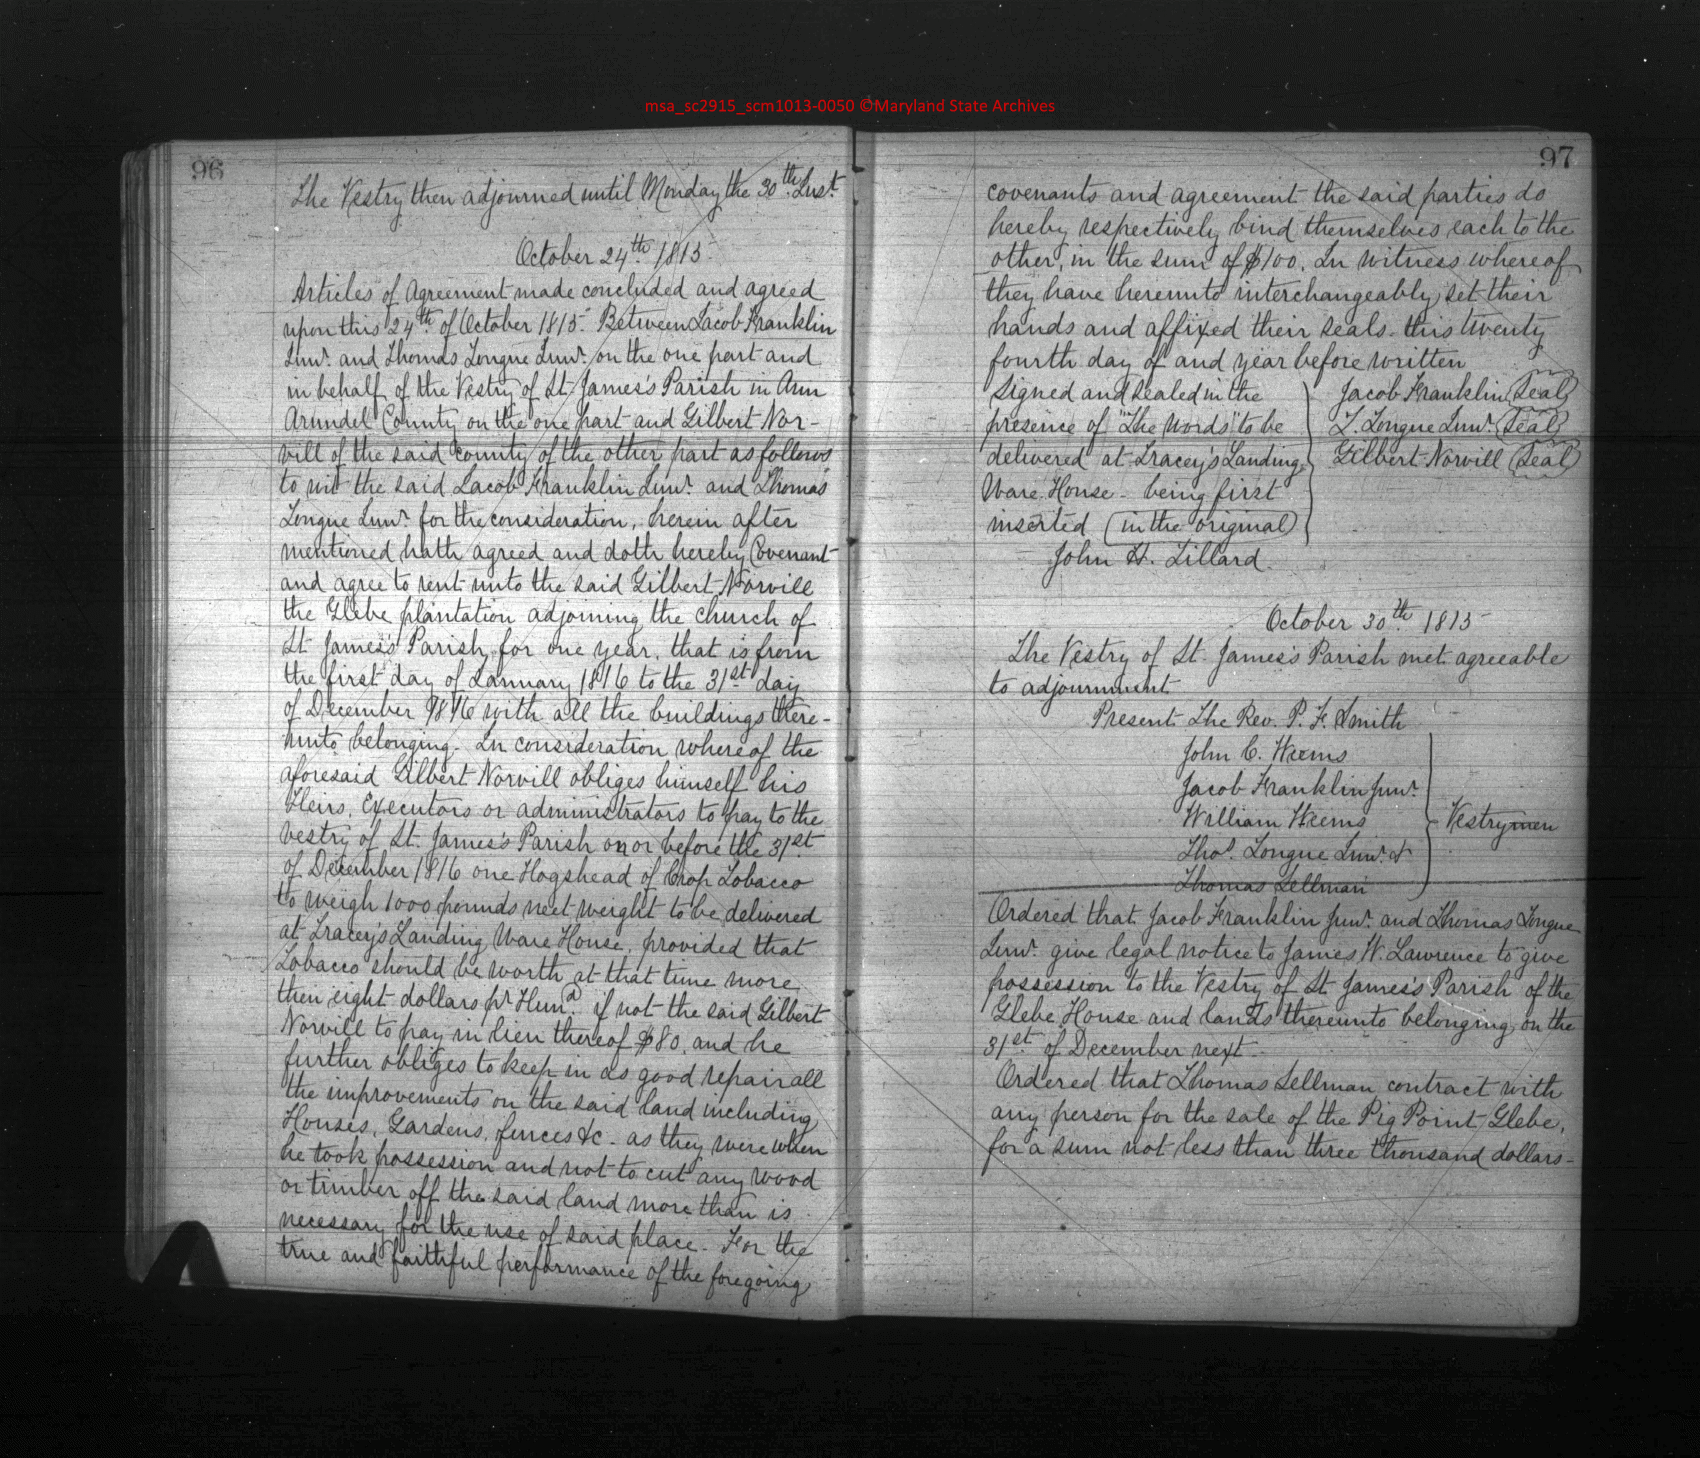 msa_sc2915_scm1013-0050 ©Maryland State Archives
96
The Vestry then adjourned until Monday the 30th Inst.
October 24th 1815
Articles of Agreement made concluded and agreed
upon this 24th of October 1815. Between Jacob Franklin
Junr. and Thomas Tongue Junr. on the one part and
in behalf of the Vestry of St James's Parish in Ann
Arundel County on the one part and Gilbert Nor-
vill of the said county of the other part as follows
to wit the said Jacob Franklin Junr. and Thomas
Tongue Junr. for the consideration, herein after
mentioned hath agreed and doth hereby Covenant
and agree to rent unto the said Gilbert Norvill
the Glebe plantation adjoining the church of
St James's Parish for one year, that is from
the first day of January 1816 to the 31st day
of December 1816 with all the buildings there-
unto belonging. In consideration whereof the
aforesaid Gilbert Norvill obliges himself his
Heirs, Executors or administrators to pay to the
vestry of St. James's Parish on or before the 31st
of December 1816 one Hogshead of Crop Tobacco
to weigh 1000 pounds neet weight to be delivered
at Tracey's Landing Ware House, provided that
Tobacco should be worth at that time more
then eight dollars pr Hund. if not the said Gilbert
Norvill to pay in lien thereof $80, and he
further obliges to keep in as good repair all
the improvements on the said land including
Houses, Gardens, fences &c. as they were when
he took possession and not to cut any wood
or timber off the said land more than is
necessary for the use of said place. For the
true and faithful performance of the foregoing
97
covenants and agreement the said parties do
hereby respectively bind themselves each to the
other, in the sum of $100. In witness whereof
they have hereunto interchangeably set their
hands and affixed their seals this twenty
fourth day of and year before written
Signed and sealed in the
presence of "The words" to be
delivered at Tracey's Landing
Ware House - being first
inserted (in the original)
Jacob Franklin Seal
T. Tongue Junr. Seal
Gilbert Norvill Seal
John H. Tillard.
October 30th 1815
The Vestry of St. James's Parish met agreeable
to adjournment
Present The Rev. P. F. Smith
John C. Weems
Jacob Franklin Junr.
William Weems
Thos. Tongue Junr. &
Thomas Sellman
Vestrymen
Ordered that Jacob Franklin Junr. and Thomas Tongue
Junr. give legal notice to James W. Lawrence to give
possession to the Vestry of St James's Parish of the
Glebe House and lands thereunto belonging, on the
31st of December next.
Ordered that Thomas Sellman contract with
any person for the sale of the Pig Point Glebe,
for a sum not less than three thousand dollars-